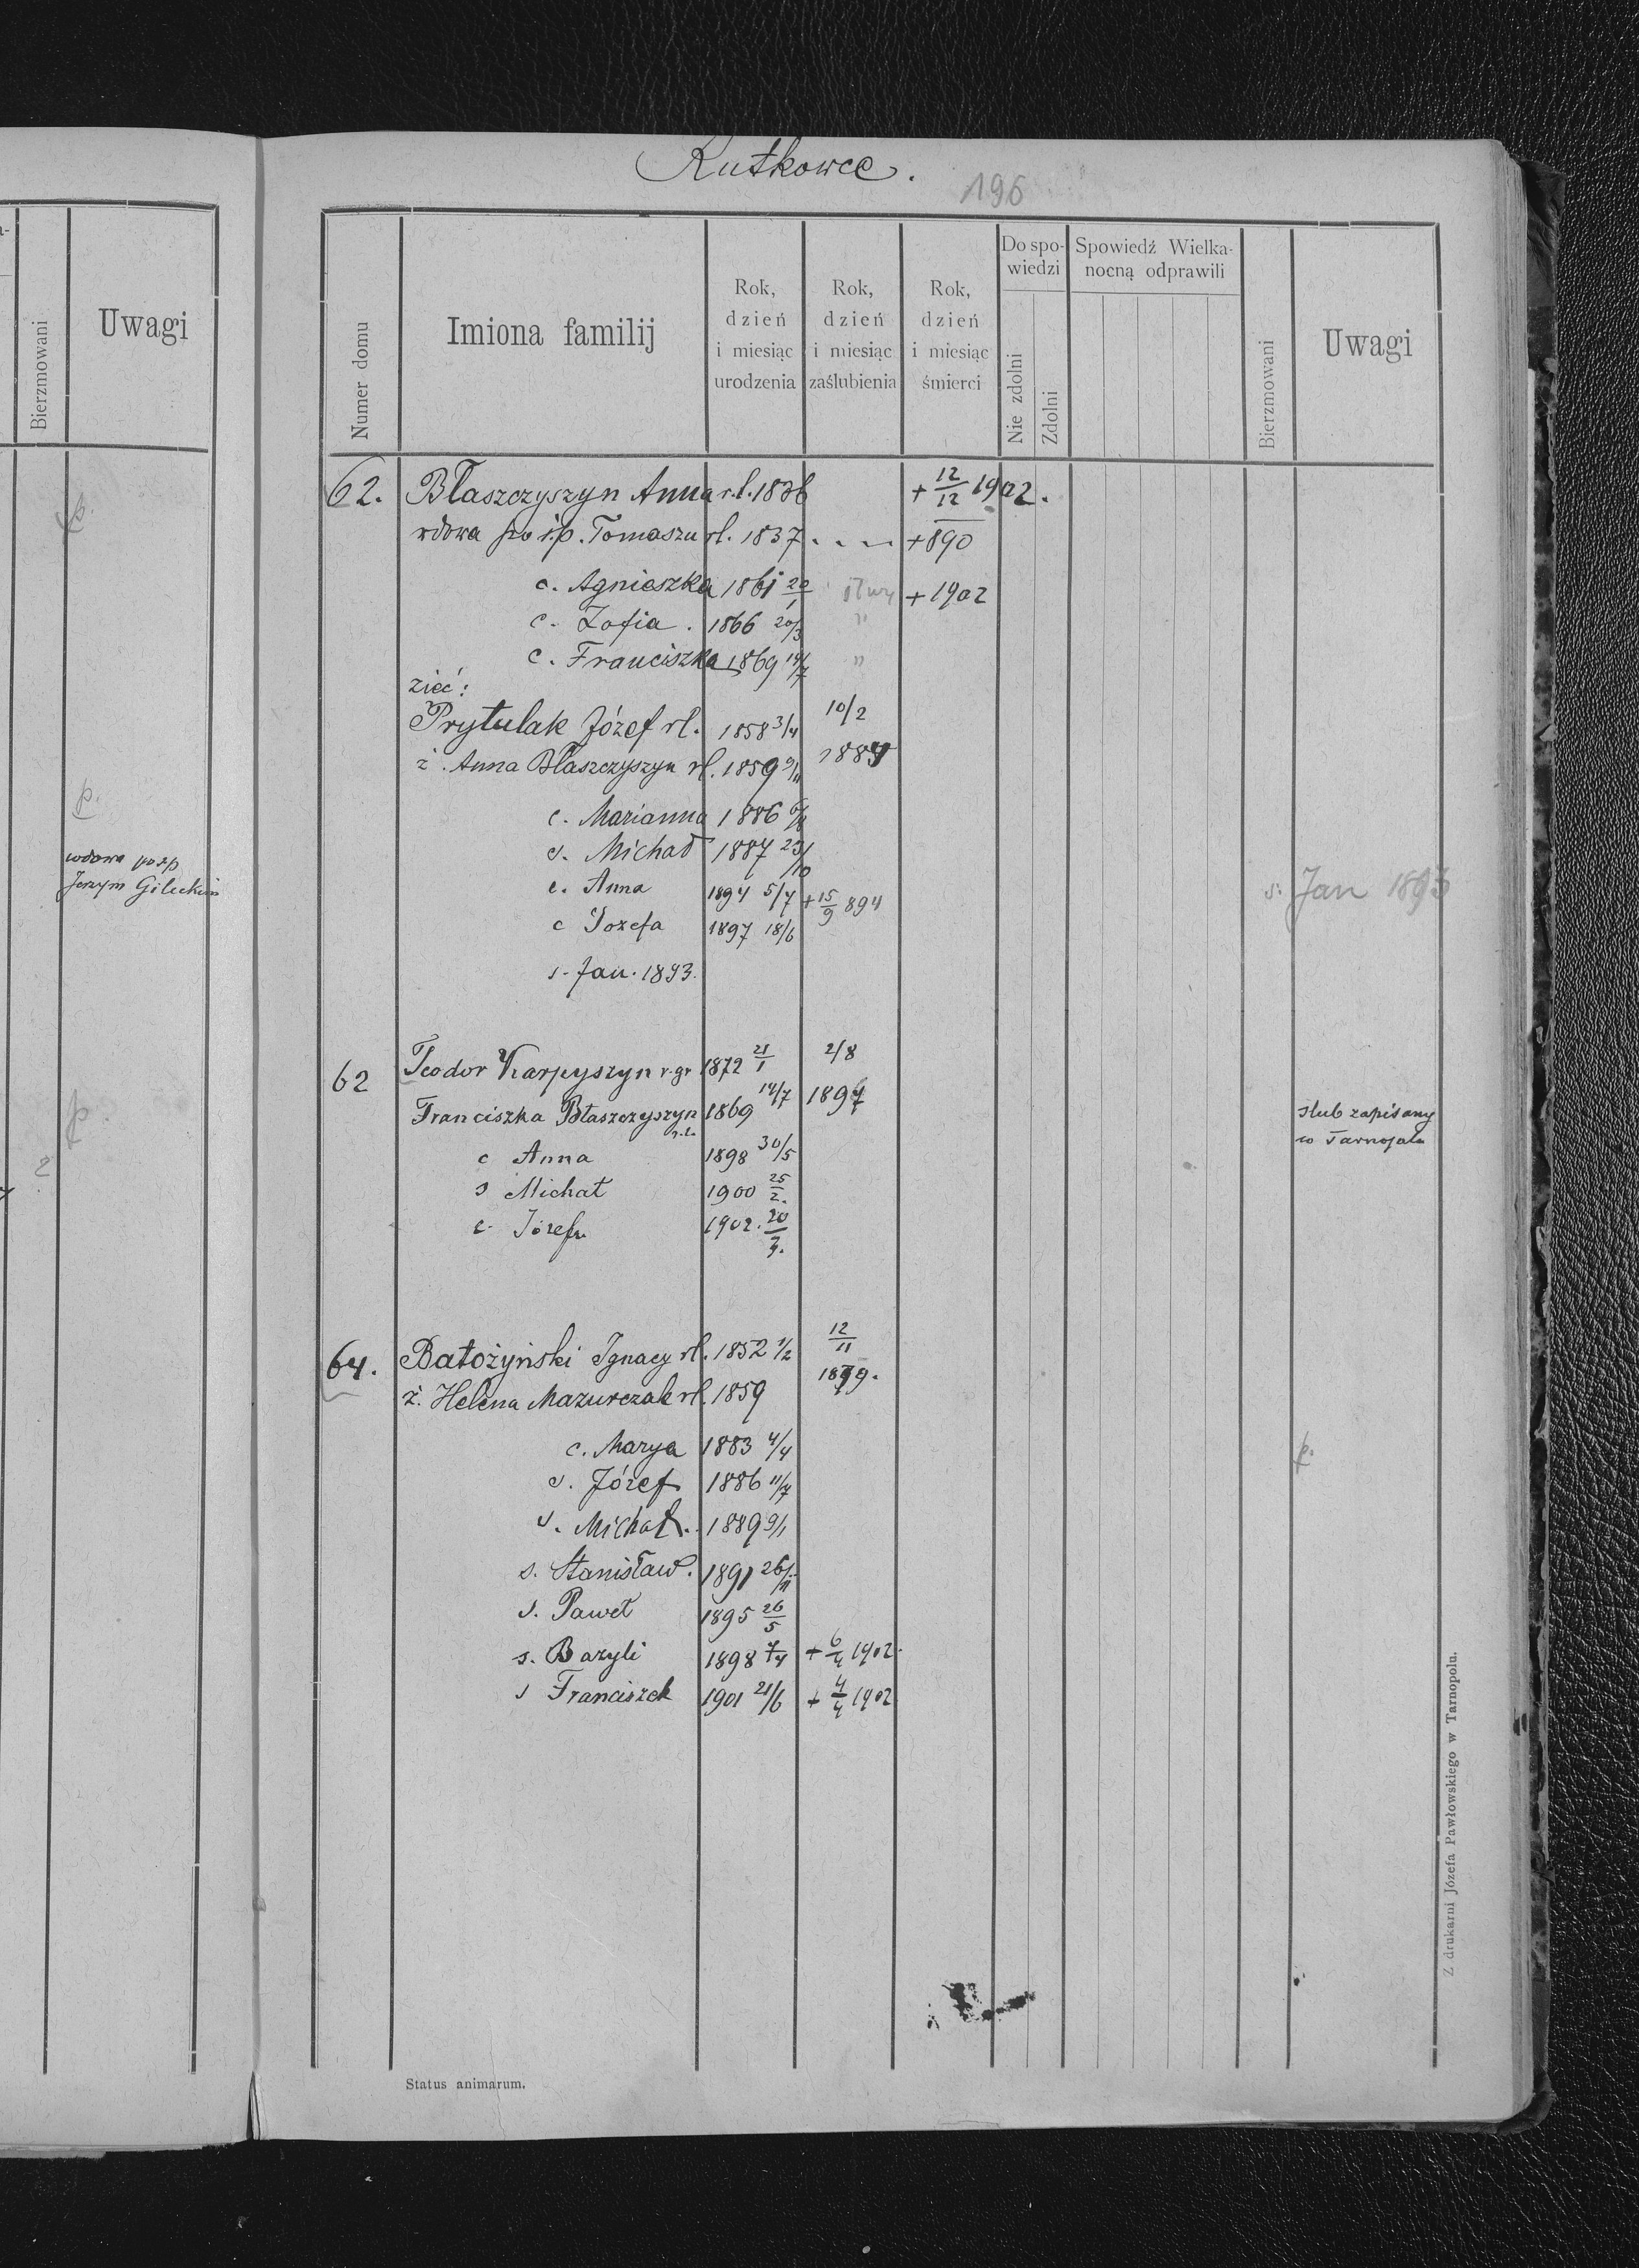 Kutkowce.
196
Uwagi
Bierzmowani
Numer domu
Imiona familij
Rok, dzień i miesiąc urodzenia
Rok, dzień i miesiąc zaślubienia
Rok, dzień i miesiąc śmierci
Do spowiedzi
Nie zdolni
Zdolni
Spowiedź Wielkanocną odprawili
Bierzmowani
Uwagi
p.
p.
wdowa po śp
Jerzym
p.
62. Błaszczyszyn Anna r.l. 1836 + 12/12 1902.
wdowa po ś.p. Tomaszu rl. 1837 . . . . +890
c. Agnieszka 1861 20/1 + 1902
c. Zofia. 1866 20/3 "
c. Franciszka 1869 14/7 "
zięć:
Prytulak Józef rl. 1858 3/4 10/2
ż. Anna Błaszczyszyn rl. 1859 9/11 1884
c. Marianna 1886 6/8
s. Michał 1887 23/10
c. Anna 1894 5/7 + 15/9 894 s. Jan 1893
c Jozefa 1897 18/6
s. Jan. 1893.
62 Teodor Karpyszyn r.gr 1872 21/1 2/8
Franciszka Błaszczyszyn r.l. 1869 14/7 1897 slub zapisany
w Tarnopolu
c Anna 1898 30/5
s Michał 1900 25/2.
c. Józefa 1902. 20/3.
64. Batożyński Ignacy rl. 1852 1/2 12/11
ż. Helena Mazurczak rl. 1859 1879.
c. Marya 1883 4/4 p.
s. Józef 1886 11/7
s. Michał. 1889 9/1
s. Stanisław. 1891 26/11
s. Paweł 1895 26/5
s. Bazyli 1898 7/4 + 6/4 1902.
s Franciszek 1901 21/6 + 4/4 1902
Status animarum.
Z drukarni Józefa Pawłowskiego w Tarnopolu.